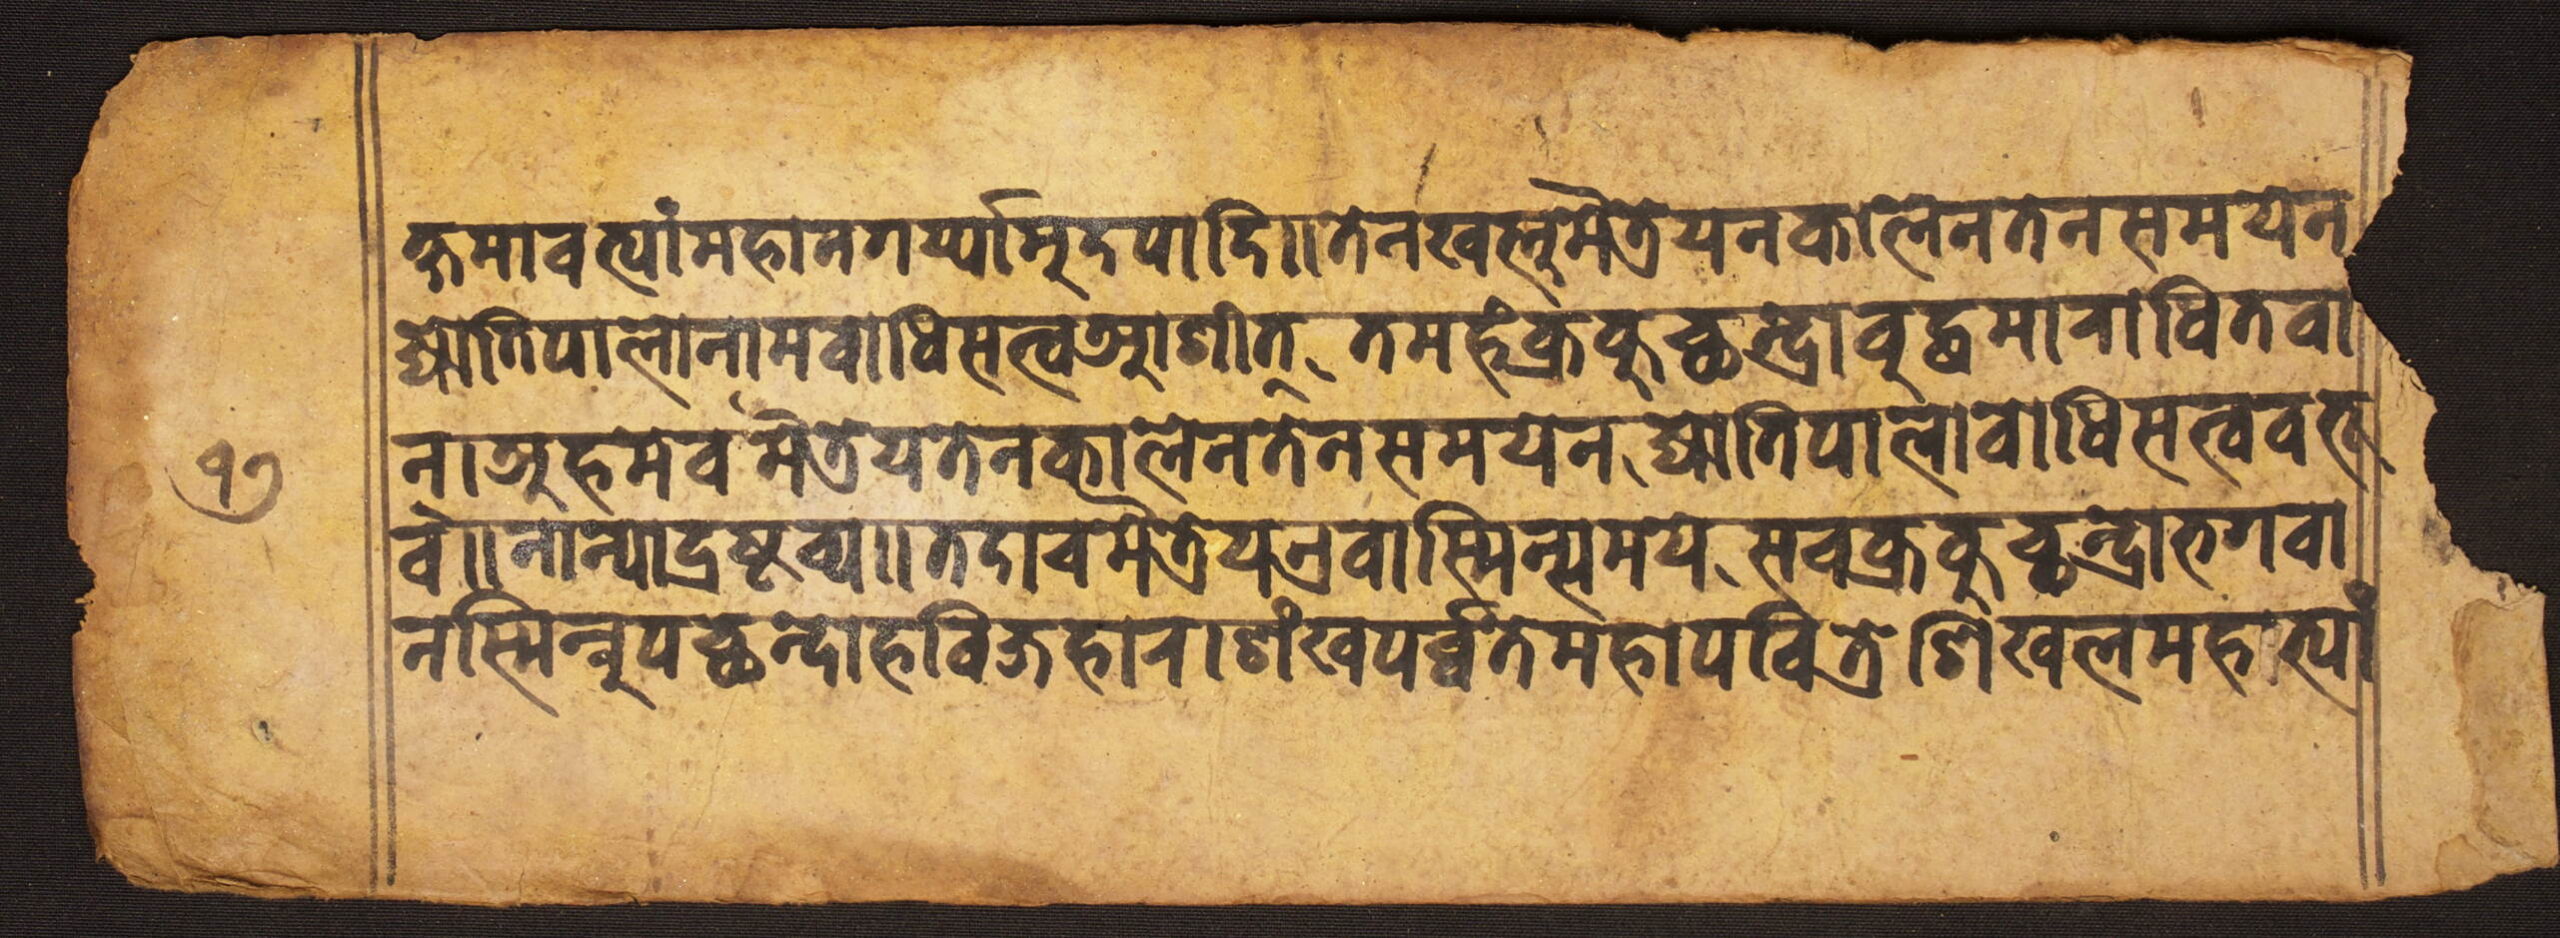 क्षमावत्यांमहानगर्य्यामुदपादि॥तेनखलुमैत्रेयनकालेनतेनसमयेन
ज्योतिपालोनामबोधिसत्वआशीत् तमहंक्रकुच्छन्द्रोबुद्धमाराधितवा
न।अहमेवमैत्रेयतेनकालेनतेनसमयेन ज्योतिपालोबोधिसत्वबभू
व॥नान्योद्रष्टव्य॥तदावमैत्रेयत्रवास्मिन्समये सवक्रकुच्छन्द्रोभगवा
नस्मिन्नुपच्छन्दोहविजहार।शंखपर्व्वतेमहापवित्रेशिखलमहात्यां
१७